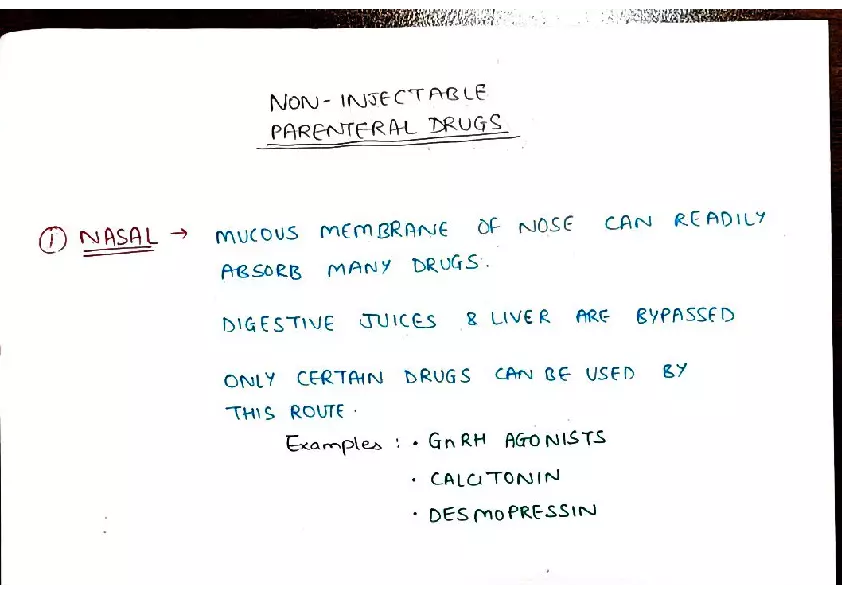 NON-INJECTABLE
PARENTERAL DRUGS
① NASAL → MUCOUS MEMBRANE OF NOSE CAN READILY
ABSORB MANY DRUGS.
DIGESTIVE JUICES & LIVER ARE BYPASSED
ONLY CERTAIN DRUGS CAN BE USED BY
THIS ROUTE.
Examples : • GnRH AGONISTS
• CALCITONIN
• DESMOPRESSIN